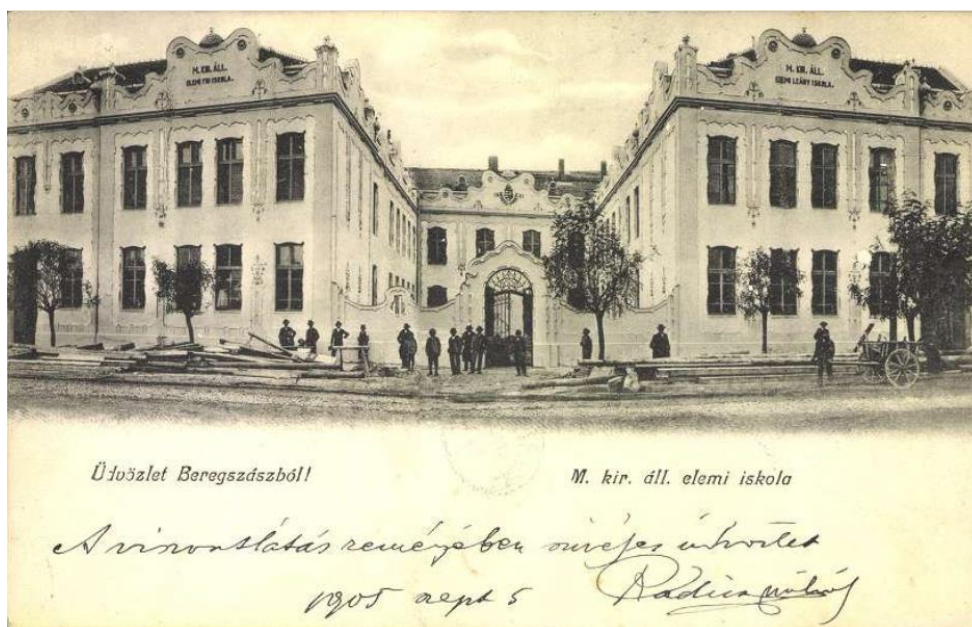 M. KIR. ÁLL.
ELEMI FIU ISKOLA.
M. KIR. ÁLL.
ELEMI LEÁNY ISKOLA.
Üdvözlet Beregszászból!
M. kir. áll. elemi iskola
A viszontlátás reményében szivéjes üdvözlet
1905 szept 5